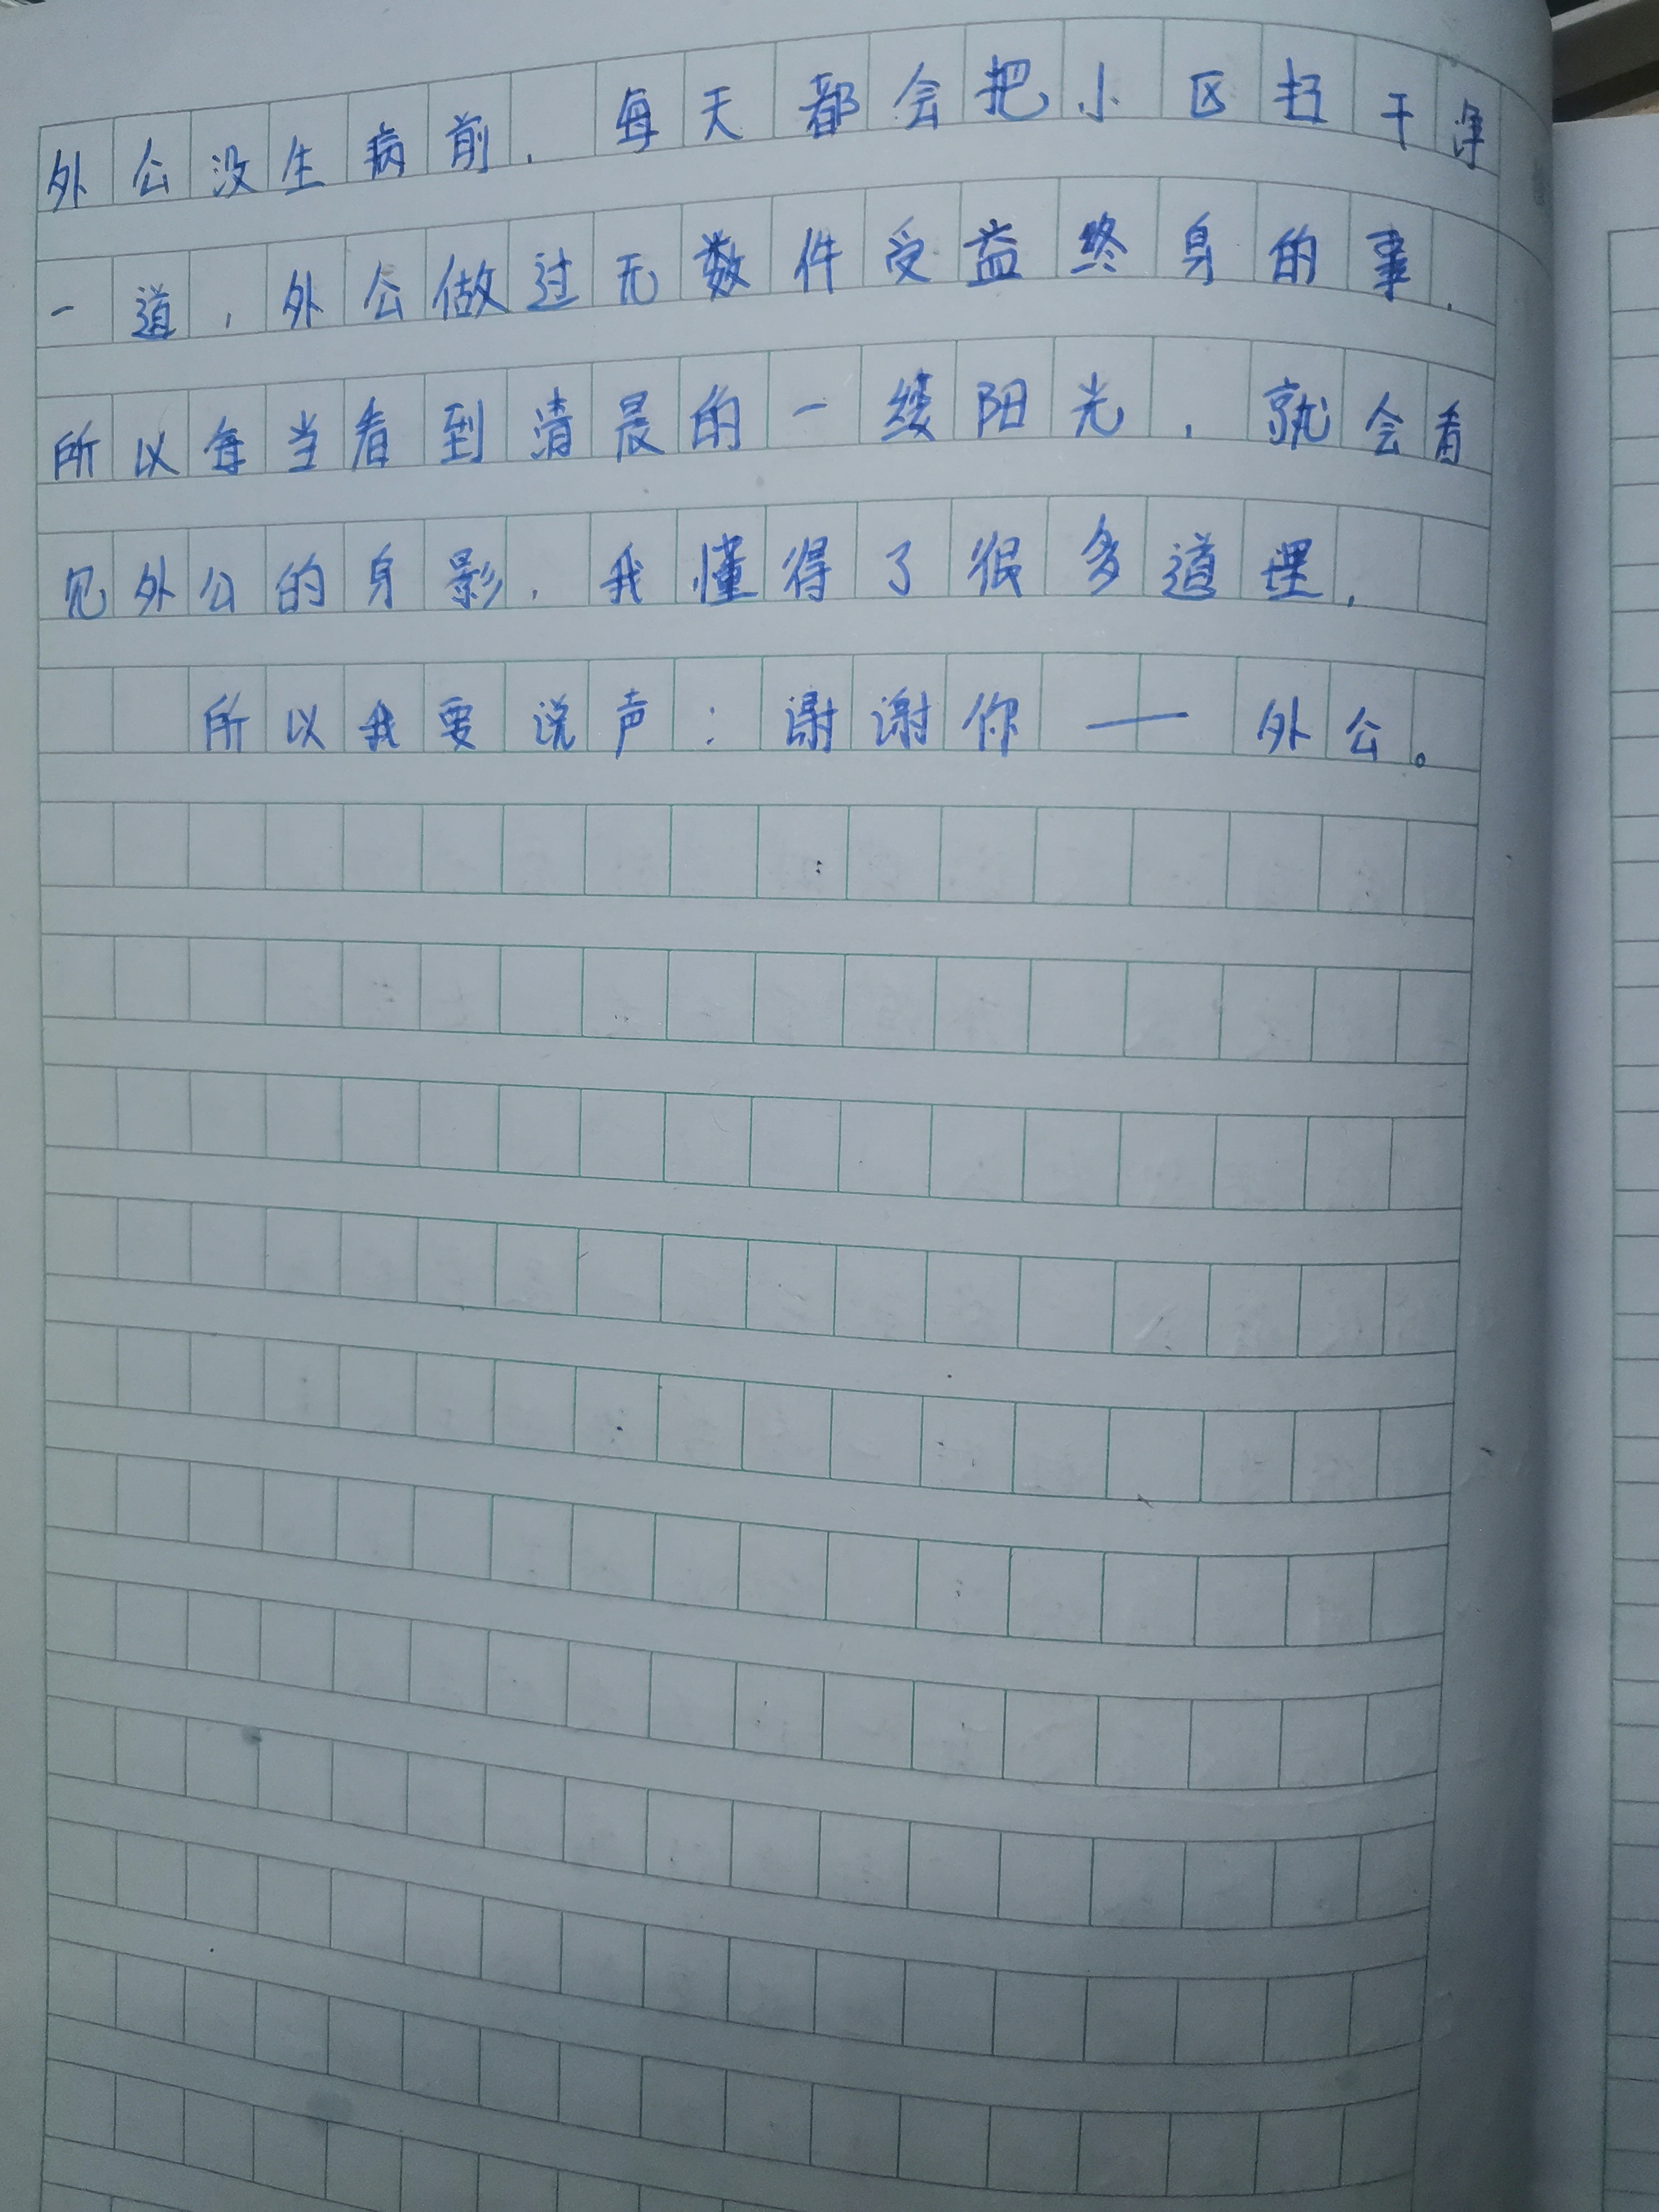 外公没生病前，每天都会把小区扫干净
一道，外公做过无数件受益终身的事，
所以每当看到清晨的一缕阳光，就会看
见外公的身影，我懂得了很多道理，
所以我要说声：谢谢你——外公。